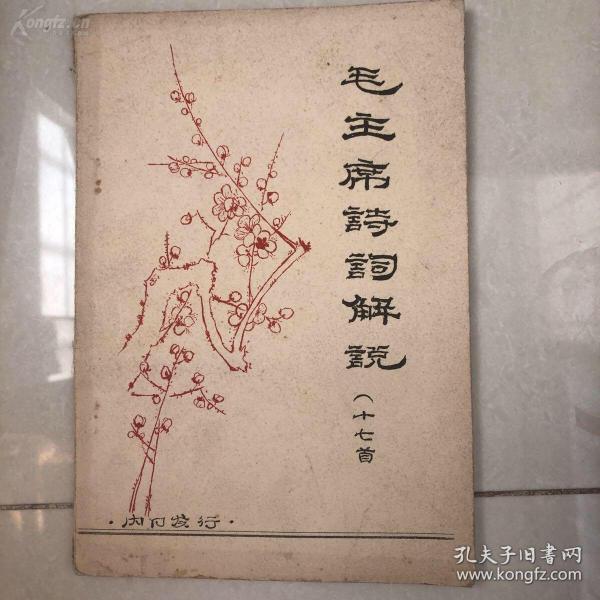 Kongfz.cn
毛主席詩詞解説
(十七首
·内卩发行·
孔夫子旧书网
www.kongfz.com